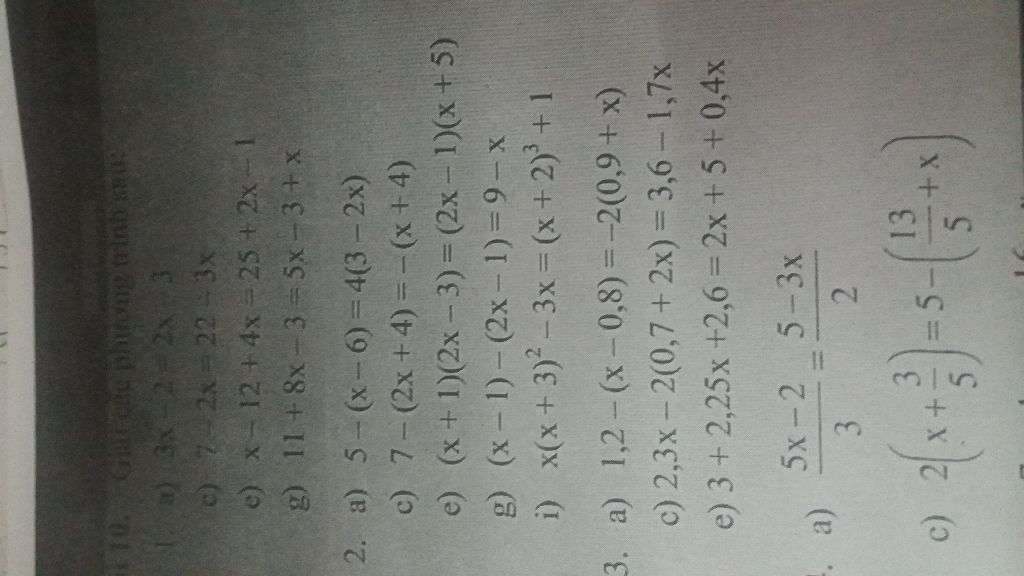 10. Giải các phương trình sau:
1. a) 3x – 2 = 2x – 3
c) 7 – 2x = 22 – 3x
e) x – 12 + 4x = 25 + 2x – 1
g) 11 + 8x – 3 = 5x – 3 + x
2. a) 5 – (x – 6) = 4(3 – 2x)
c) 7 – (2x + 4) = – (x + 4)
e) (x + 1)(2x – 3) = (2x – 1)(x + 5)
g) (x – 1) – (2x – 1) = 9 – x
i) x(x + 3)² – 3x = (x + 2)³ + 1
3. a) 1,2 – (x – 0,8) = –2(0,9 + x)
c) 2,3x – 2(0,7 + 2x) = 3,6 – 1,7x
e) 3 + 2,25x +2,6 = 2x + 5 + 0,4x
a) (5x – 2)/3 = (5 – 3x)/2
c) 2(x + 3/5) = 5 – (13/5 + x)